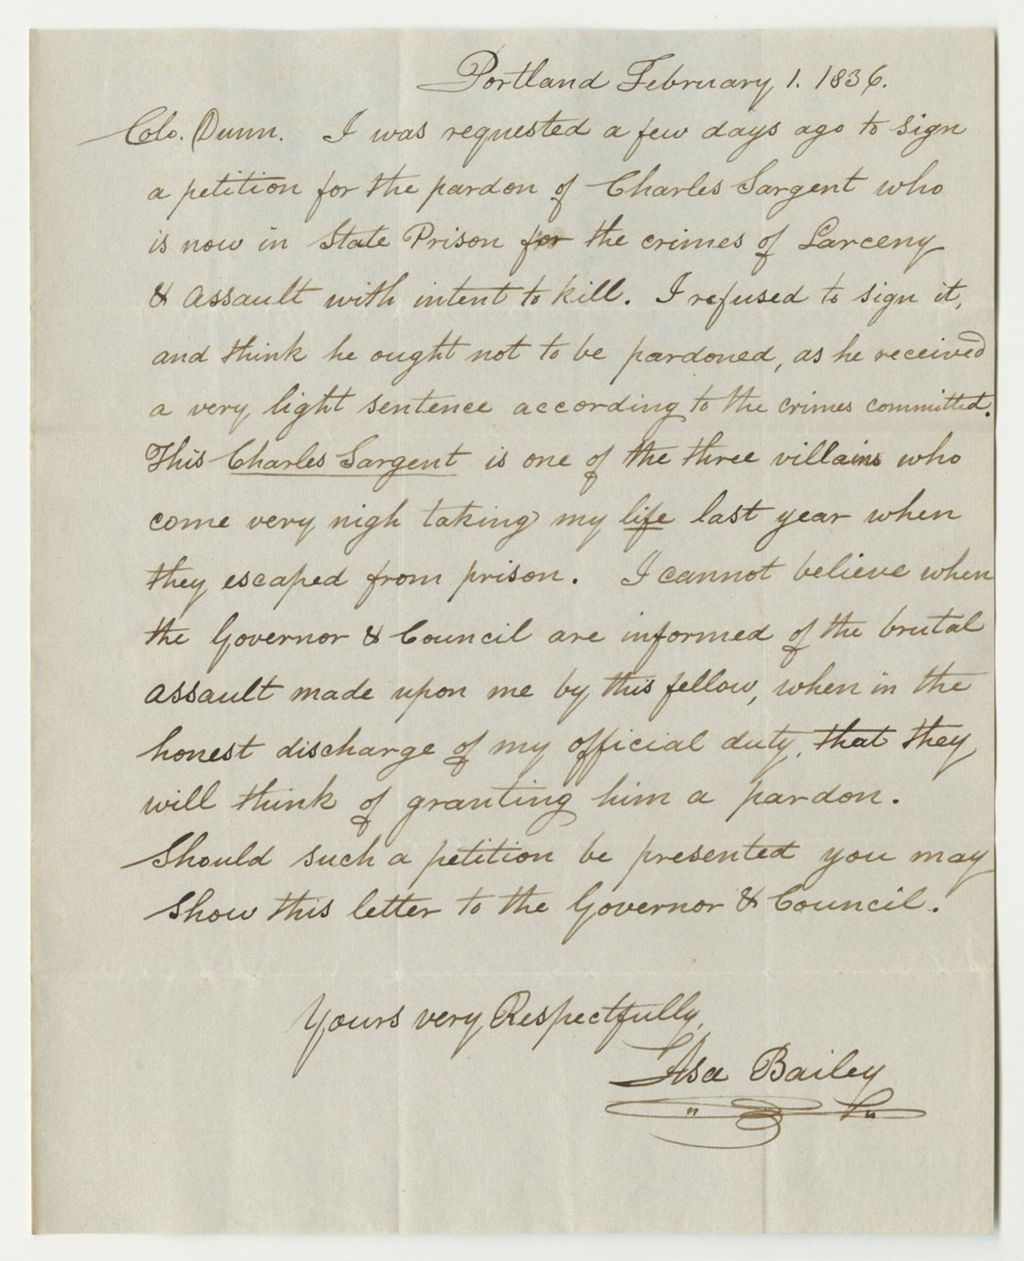 Portland February 1. 1836.
Colo. Dunn. I was requested a few days ago to sign
a petition for the pardon of Charles Sargent who
is now in State Prison for the crimes of Larceny
& Assault with intent to kill. I refused to sign it,
and think he ought not to be pardoned, as he received
a very light sentence according to the crimes committed.
This Charles Sargent is one of the three villains who
come very nigh taking my life last year when
they escaped from prison. I cannot believe when
the Governor & Council are informed of the brutal
assault made upon me by this fellow, when in the
honest discharge of my official duty, that they
will think of granting him a pardon.
Should such a petition be presented you may
show this letter to the Governor & Council.
Yours very Respectfully,
Asa Bailey